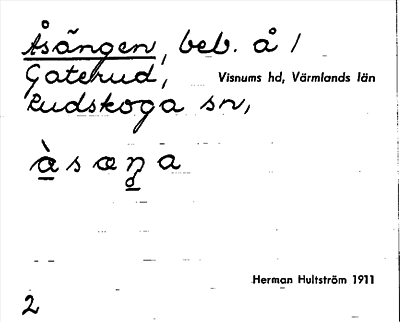 Åsängen, beb. å /
Gaterud, Visnums hd, Värmlands län
Rudskoga sn,
à s æ ŋ a
Herman Hultström 1911
2